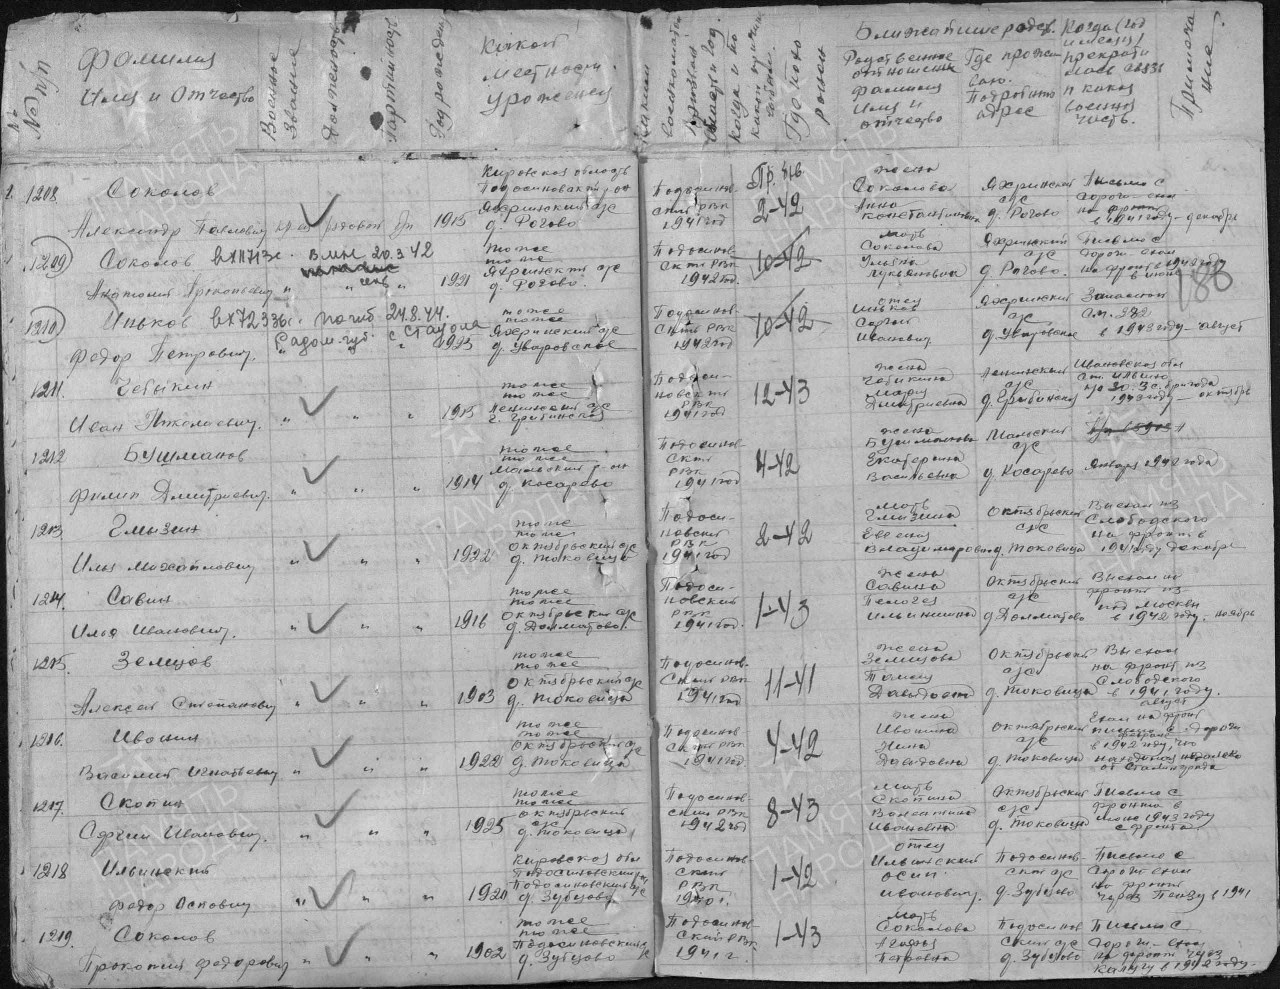 № п/п
Фамилия
Имя и Отчество
Военное
Звание
Должность
Партийность
Год рождения
Какой
местности
Уроженец
Каким
Когда и по
какой причине
выбыл
Ближайшие родств.
Родственные
отношения
фамилия
Имя и
отчество
Где прожи
вают.
Подробный
адрес
Когда (год
и месяц)
прекрати
лась связь
и какая
воинская
часть.
Примеча
ние
1208 Соколов
Александр Павлович рядовой 1915
Кировская область
Подосиновский р-он
Яхринский с/с
д. Рогово
Подосинов-
ский РВК
1941 год
Пр. б/в.
2-42
жена
Соколова
Анна
Константиновна
Яхринский
с/с
д. Рогово
Письмо с
дороги ехал
на фронт
в 1941 году - декабрь
1209 Соколов вх11713с. В.пл 20.3.42
Анатолий " " " 1921
то же
то же
Яхринский с/с
д. Рогово
Подосинов-
ский РВК
1942 год.
10-42
мать
Соколова
Ульяна
Лукьяновна
Яхринский
с/с
д. Рогово.
Письмо с
дороги ехал
на фронт в 1942 году
в июне
188
1210 Иньков вх72336с. погиб 24.8.44.
Радом. губ. с. Стадола
Федор Петрович. " " " 1925
то же
то же
Яхринский с/с
д. Уваровское
Подосинов-
ский РВК
1942 год
10-42
отец
Иньков
Иванович
Яхринский
с/с
д. Уваровское
в 1943 году - август
1211. Чебыкин
Иван Николаевич. " " " 1915
то же
то же
Ленинский с/с
Подоси-
новский
РВК
1941 год
12-43
жена
Чебыкина
Мария
Дмитриевна
Ленинский
с/с
Ивановская обл
1943 году - октябрь
1212 Бушманов
Филип Дмитриевич. " " " 1914
то же
то же
д. Косарево
Подосинов-
ский
РВК
1941 год
4-42
жена
Бушманова
Екатерина
Васильевна
с/с
д. Косарево
Январь 1942 года
1213 Глызин
Илья Михайлович " " " 1922
то же
то же
Октябрьский с/с
д. Токовица
Подоси-
новский
РВК
1941 год
2-42
мать
Глызина
Евгения
Владимировна
Октябрьский
с/с
д. Токовица
Выехал из
Слободского
на фронт в
1941 году декабрь
1214. Савин
Илья Иванович. " " " 1916
то же
то же
Октябрьский с/с
д. Долматово.
Подоси-
новский
РВК
1941 год.
1-43
жена
Савина
Пелагея
Ильинична
Октябрьский
с/с
д Долматово
Выехал на
фронт из
под Москвы
в 1942 году. ноябрь
1215. Земцов
Алексей Степанович " " " 1903
то же
то же
Октябрьский с/с
д. Токовица
Подосинов-
ский РВК
1941 год
11-41
жена
Земцова
Давыдовна
Октябрьский
с/с
д. Токовица
Выехал
на фронт из
Слободского
в 1941 году.
август
1216. Иванин
Василий Игнатьевич " " " 1922
то же
то же
Октябрьский с/с
д. Токовица
Подосинов
ский РВК
1941 год.
4-42
жена
Иванина
Нина
Давыдовна
Октябрьский
с/с
д. Токовица
Ехал на фронт
письмо с дороги
февраль
в 1942 году, что
находится недалеко
от Сталинграда
1217. Скопин
Сергей Иванович. " " " 1925
то же
то же
Октябрьский
с/с
д. Токовица
Подосинов-
ский РВК
1942 год
8-43
мать
Скопина
Валентина
Ивановна
Октябрьский
с/с
д. Токовица
Письмо с
фронта в
июне 1943 году
с фронта
1218 Ильинский
Федор Осипович " " " 1920
Кировская обл
Подосиновский р-он
Подосиновский с/с
д. Зубцово
Подосинов-
ский
РВК
1940 г.
1-42
отец
Ильинский
Осип
Иванович.
Подосинов-
ский с/с
д. Зубцово
Письмо с
дороги ехал
на фронт
через Пензу в 1941
1219. Соколов
Прокопий Федорович " " " 1902
то же
то же
Подосиновский с/с
д. Зубцово
Подосинов-
ский РВК
1941 г.
1-43
мать
Соколова
Агафья
Петровна
Подосинов-
ский с/с
д. Зубцово
Письмо с
дороги - ехал
на фронт через
Калугу в 1942 году.
ПАМЯТЬ
НАРОДА